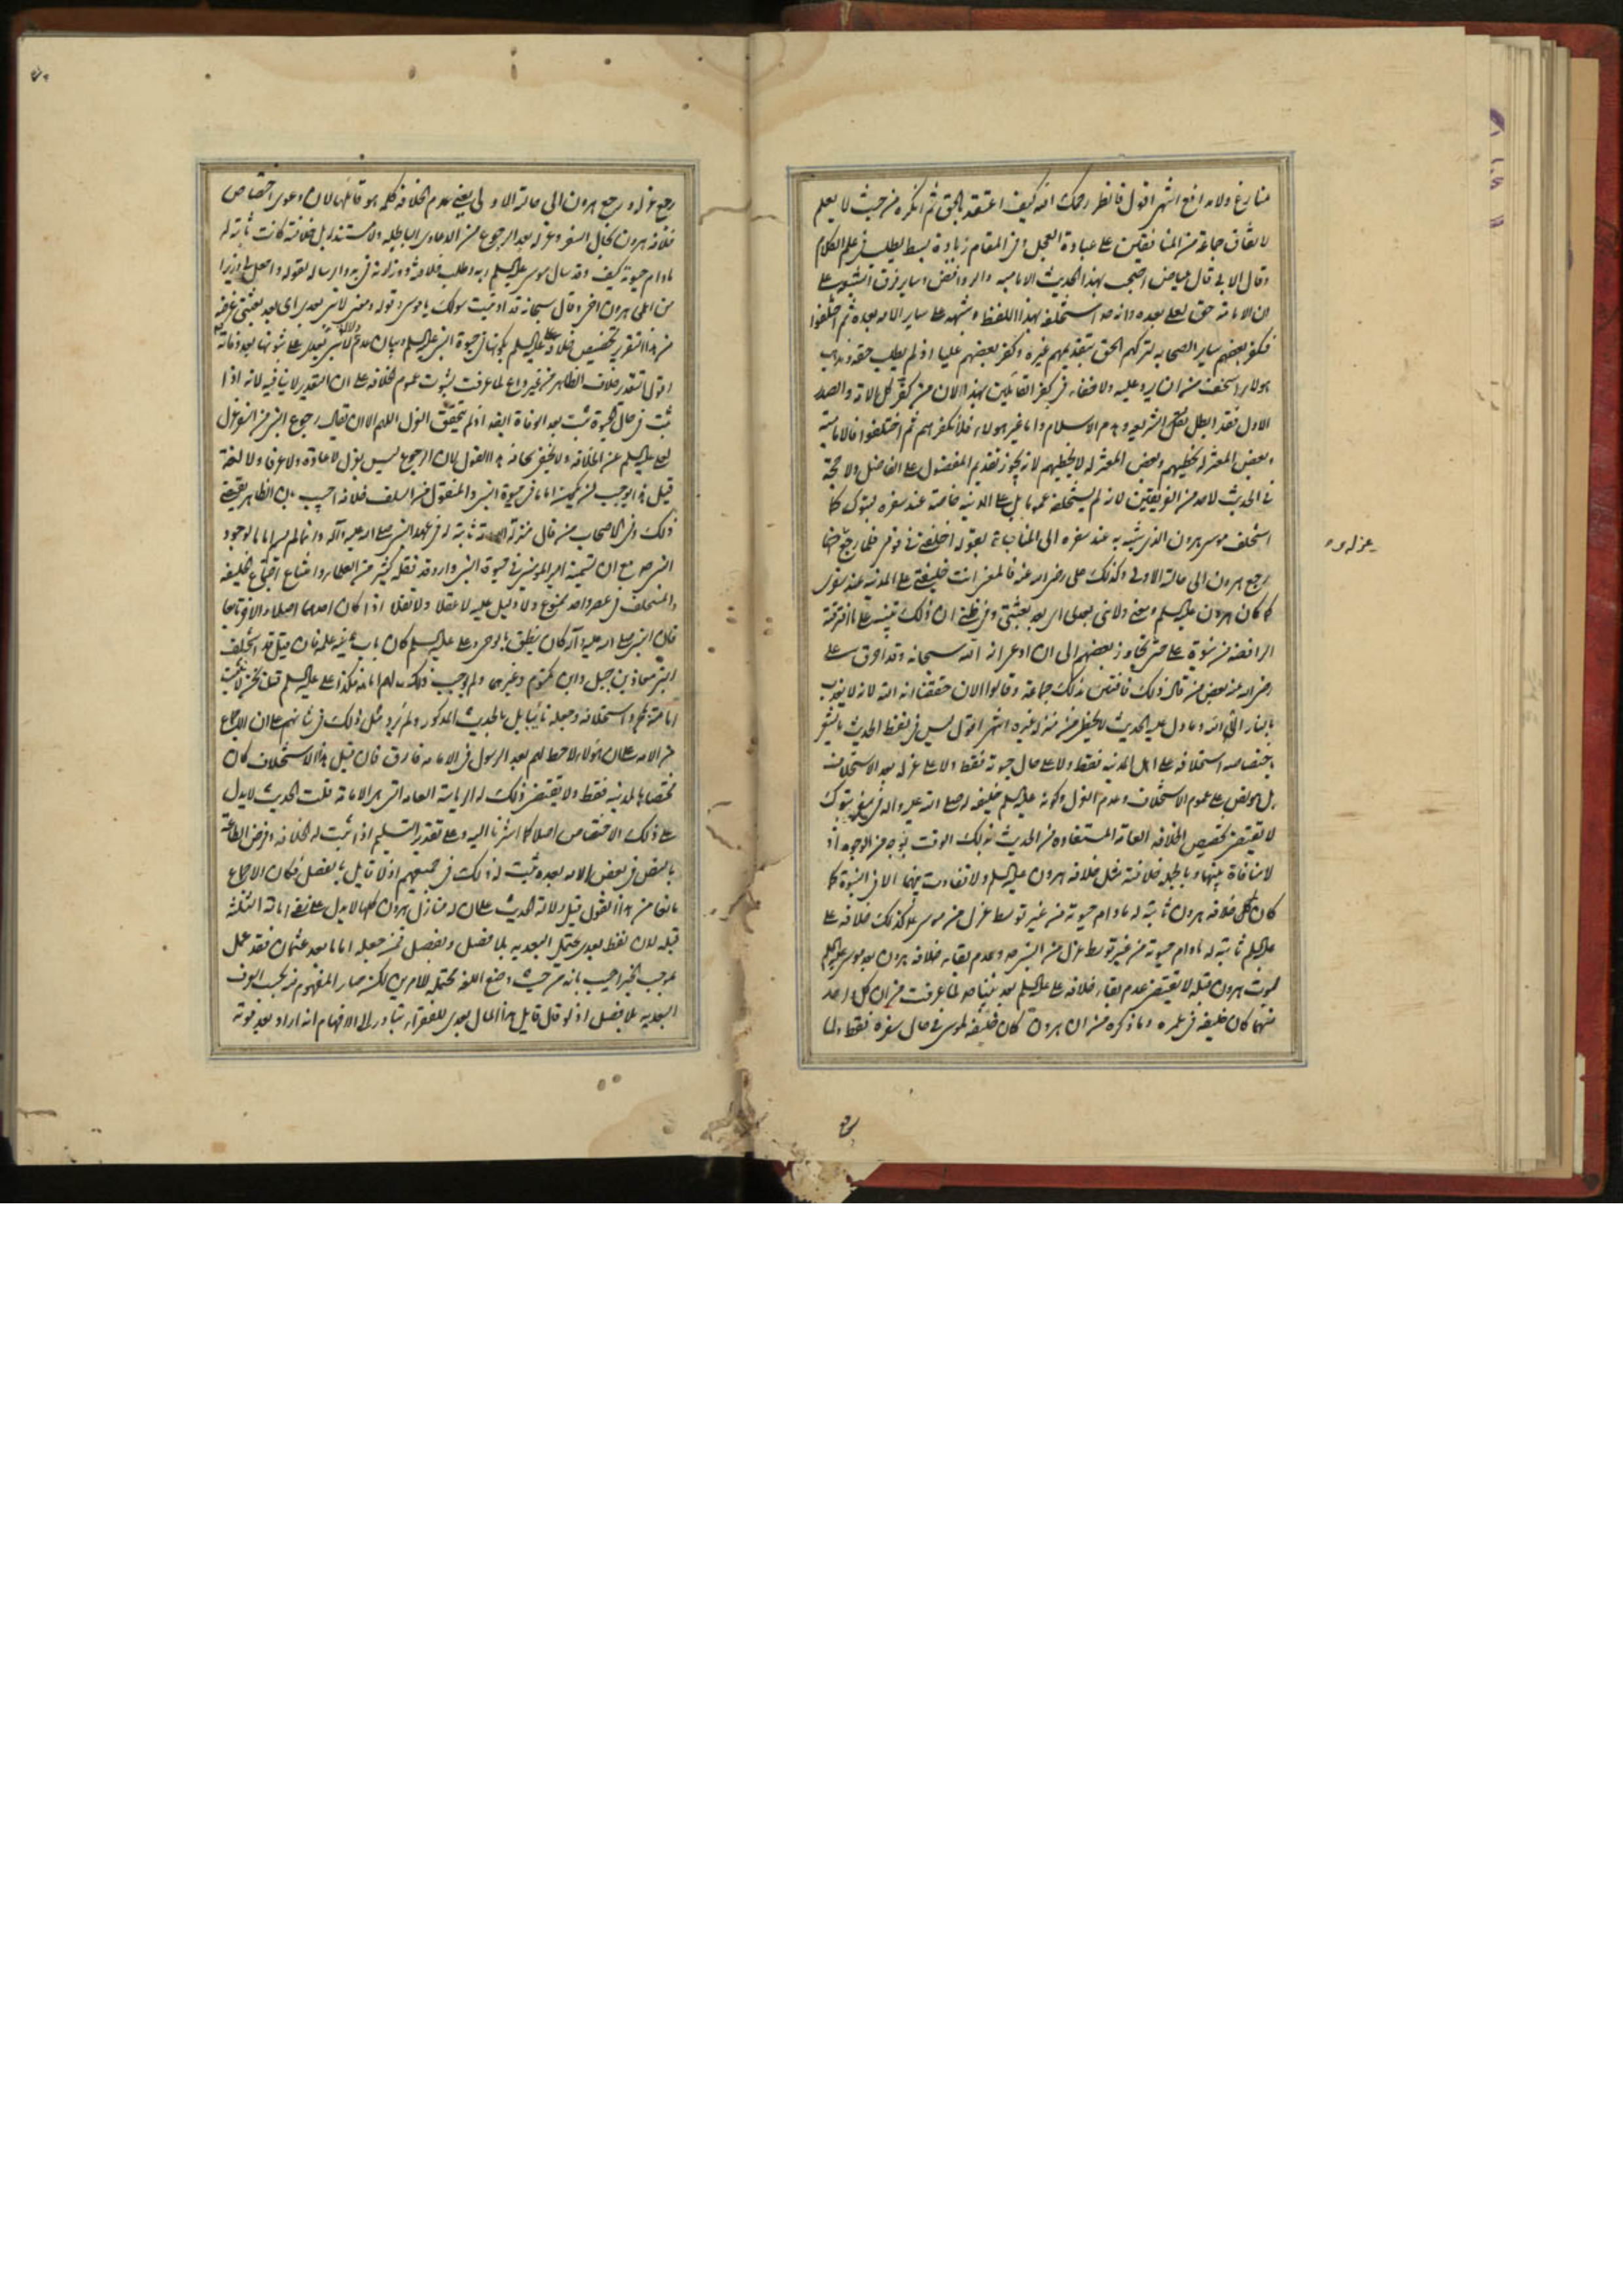 منازع ولا مدافع انتهى اقول فانظر رحمك الله كيف اعتقد بالحق ثم انكره من حيث لا يعلم
لاتفاق جماعة من المنافقين على عبادة العجل وفى المقام زيادة بسط يطلب فى علم الكلام
وقال الابى قال عياض احتج بهذا الحديث الامامية والروافض وساير فرق الشيعة على
ان الامامة حق لعلى بعده وانه ص استخلفه بهذا اللفظ وشهد على ساير الامة بعده ثم اختلفوا
فكفر بعضهم ساير الصحابه بتركهم الحق بتقديمهم غيره وكفر بعضهم عليا اذ لم يطلب حقه ومذهب
هولاء اسخف من ان يرد عليه ولا خفاء فى كفر القائلين بهذا لان من كفر كل الامة والصدر
الاول فقد ابطل نقل الشريعه وهدم الاسلام واما غير هولاء فلا نكفرهم ثم اختلفوا فالامامية
وبعض المعتزلة يخطيهم وبعض المعتزله لا يخطيهم لانه يجوز تقديم المفضول على الفاضل ولا حجة
فى الحديث لاحد من الفريقين لانه لم يستخلفه عموما بل على المدينه خاصة عند سفره لتبوك كما
استخلف موسى هرون الذى شبه به عند سفره الى المناجاة بقوله اخلفنى فى قومى فلما رجع
رجع هرون الى حالته الاولى وكذلك على رضى الله عنه فالمعنى انت خليفتى على المدينه عند سفرى
كما كان هرون عليه السلم ومعنى ولا نبى بعدى اى بعد بعثتى وفى ظنى ان ذلك تنبيه على ما افترقت
الرافضه من نبوة على حتى تجاوز بعضهم الى ان ادعى انه الله سبحانه وقد احرق على
رضى الله عنه بعض من قال ذلك فافتتن بذلك جماعة وقالوا الان حققنا انه الله لانه لا يعذب
بالنار الا الله وما دل عليه الحديث لا يحفظ من منزله غيره انتهى اقول ليس فى لفظ الحديث ما يشعر
باختصاص استخلافه على اهل المدينه فقط ولا على حال حيوته فقط ولا على عزله بعد الاستخلاف
بل هو نص على عموم الاستخلاف وعدم العزل وكونه عليه السلم خليفة له صلى الله عليه واله فى سفر تبوك
لا يقتضى تخصيص الخلافه العامه المستفاده من الحديث بذلك الوقت بوجه من الوجوه اذ
لا منافاة بينهما وبالجمله خلافته مثل خلافة هرون عليه السلم ولا تفاوت بينهما الا فى النبوة كما
كان خلافة هرون ثابتة له مادام حيوته من غير توسط عزل من موسى كذلك خلافة على
عليه السلم ثابتة له مادام حيوته من غير توسط عزل من النبى ص وعدم بقاء خلافة هرون بعد موسى عليه السلم
لموت هرون قبله لا يقتضى عدم بقاء خلافة على عليه السلم بعد نبينا ص لما عرفت من ان كل واحد
منهما كان خليفة فى عمره وما ذكره من ان هرون كان خليفة لموسى فى حال سفره فقط ولما
رجع عزله ورجع هرون الى حالته الاولى يعنى عدم الخلافه كلمة هو قائلها لان دعوى اختصاص
خلافة هرون بحال السفر وعزله بعد الرجوع من الدعاوى الباطله ولا مستند له بل خلافته كانت ثابتة له
مادام حيوته كيف وقد سال موسى عليه السلم ربه وطلب خلافته ووزارته قبل ارساله بقوله واجعل لى وزيرا
من اهلى هرون اخى وقال سبحانه قد اوتيت سؤلك يا موسى وقوله ومعنى لا نبى بعدى اى بعد بعثتى غرضه
من هذا التقرير تخصيص خلافة على عليه السلم بكونها فى حيوة النبى عليه السلم وبيان عدم دلالة لا نبى بعدى على ثبوتها بعد وفاته
اقول التقدير خلاف الظاهر من غير داع لما عرفت بثبوت عموم الخلافه على ان التقدير لا ينافيه لانه اذا
ثبت فى حال الحيوة ثبت بعد الوفاة ايضا اذ لم يتحقق العزل اللهم الا ان يقال رجوع النبى من السفر عزل
لعلى عليه السلم عن الخلافه ولا يخفى سخافة هذا القول لان الرجوع ليس بعزل لا عادة ولا عرفا ولا لغة
قيل هذا يوجب كونه اماما فى حيوة النبى والمنقول من السلف خلافه اجيب بان الظاهر يقتضى
ذلك وفى الاصحاب من قال منزلة الامامة ثابتة له فى عهد النبى صلى الله عليه وآله وانما لم يسم اماما لوجود
النبى ص مع ان تسمية امير المومنين فى حيوة النبى وارد وقد نقله كثير من العلماء وامتناع اجتماع الخليفه
والمستخلف فى عصر واحد ممنوع ولا دليل عليه لا عقلا ولا نقلا اذا كان احدهما اصلا والاخر تابعا
فان النبى صلى الله عليه وآله كان ينطق بالوحى وعلى عليه السلم كان باب مدينة علمه فان قيل قد استخلف
النبى معاذ بن جبل وابن ام مكتوم وغيرهما ولم يوجب ذلك لهم امامة فكذا على عليه السلم قلت نحن لا نثبت
امامته بمجرد استخلافه وجعله نائبا بل بالحديث المذكور ولم يرد مثل ذلك فى شانهم على ان الاجماع
من الامه على ان هؤلاء لا حظ لهم بعد الرسول فى الامامه فارق فان قيل هذا الاستخلاف كان
مختصا بالمدينه فقط ولا يقتضى ذلك له الرياسة العامه التى هى الامامة قلت الحديث لا يدل
على ذلك الاختصاص اصلا كما اشرنا اليه وعلى تقدير التسليم اذا ثبت له الخلافه وفرض الطاعة
بالنص فى بعض الامه بعده ثبت له ذلك فى جميعهم اذ لا قايل بالفصل فكان الاجماع
مانعا من هذا القول قيل دلالة الحديث على ان له منازل هرون كلها لا يدل على نفى امامة الثلثة
قبله لان لفظ بعدى يحتمل البعديه بلا فصل وبفصل فمن جعله اماما بعد عثمان فقد عمل
بموجب الخبر اجيب بانه من حيث وضع اللغه محتمل للامرين لكن صار المفهوم منه بحسب العرف
البعديه بلا فصل اذ لو قال قايل هذا المال بعدى للفقراء يتبادر الى الافهام انه اراد بعد موته